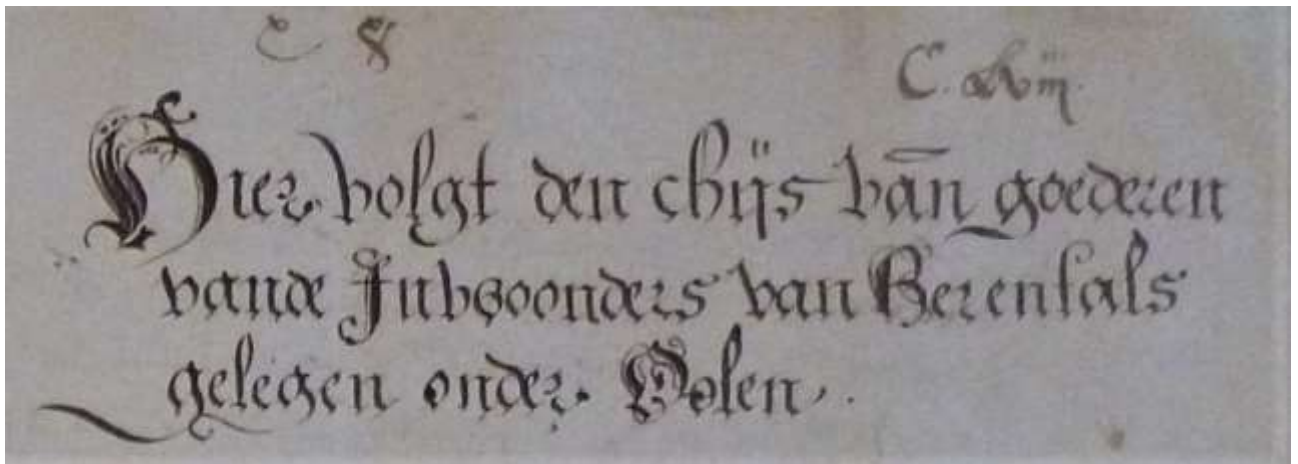 C. xlviij.
Hier volgt den chijs van goederen
vande Inwoonders van Herentals
gelegen onder Oolen.